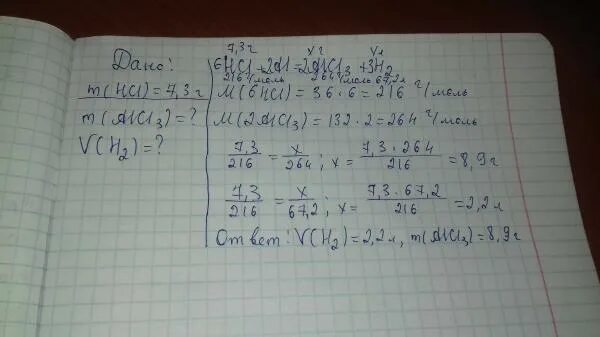 Дано:
m(HCl)=7,3г
m(AlCl₃)=?
V(H₂)=?
7,3г xг xл
6HCl+2Al=2AlCl₃+3H₂
216г/моль 264г/моль 67,2л
M(6HCl)=36·6=216 г/моль
M(2AlCl₃)=132·2=264 г/моль
7,3/216=x/264; x=7,3·264/216=8,9г
7,3/216=x/67,2; x=7,3·67,2/216=2,2л
Ответ: V(H₂)=2,2л, m(AlCl₃)=8,9г